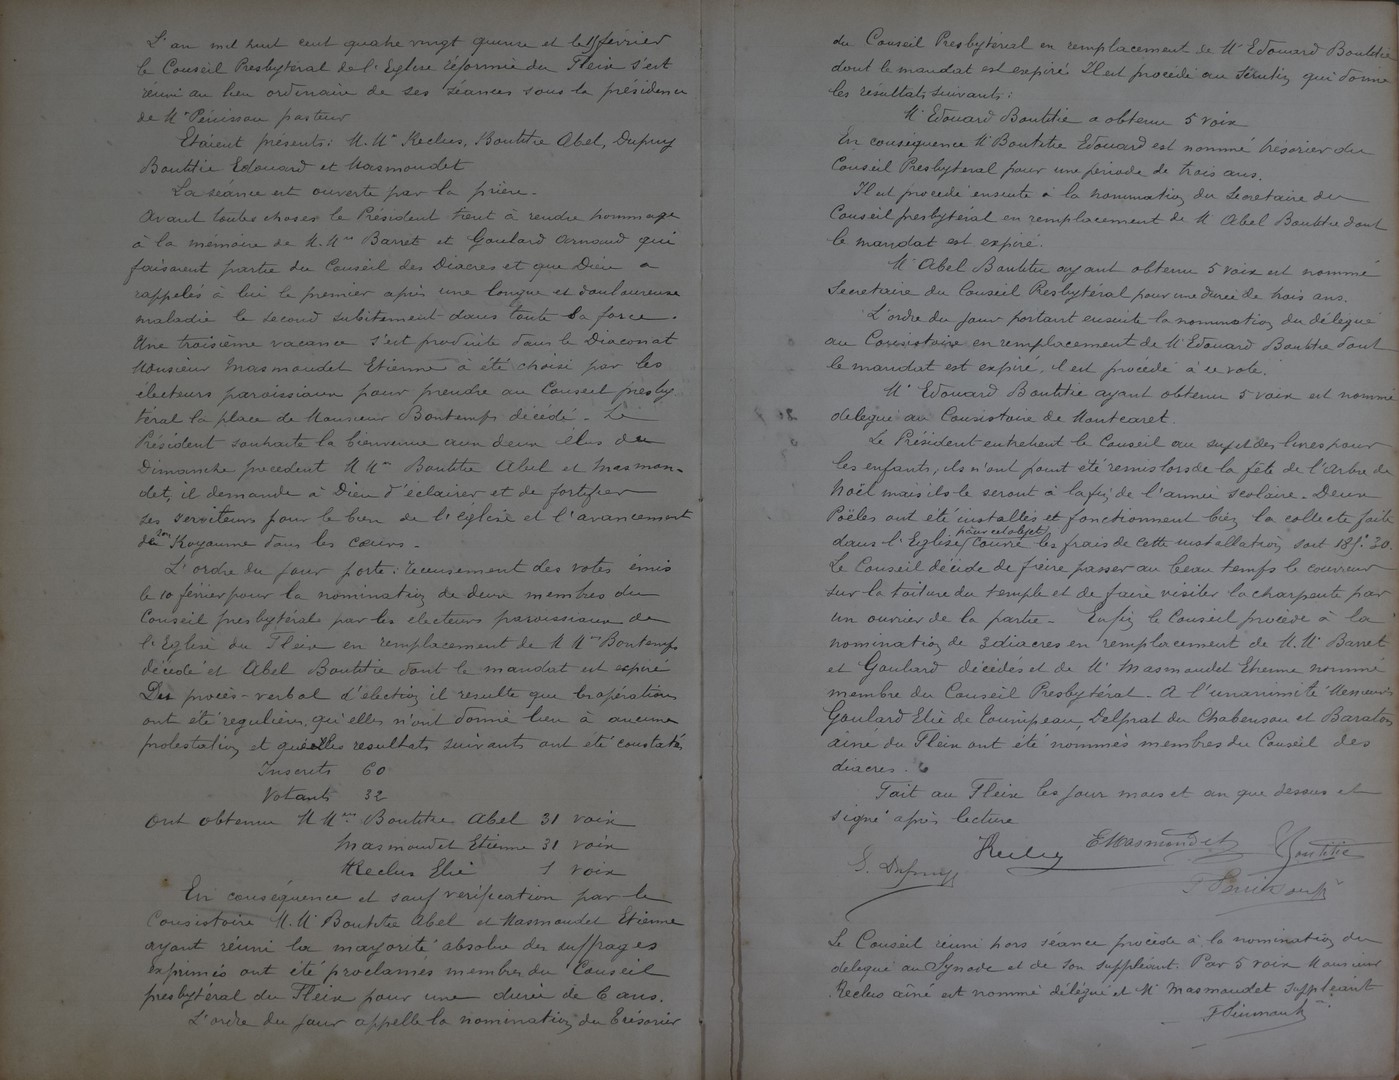 L'an mil huit cent quatre vingt quinze et le 15 février
le Conseil Presbytéral de l'Eglise réformée du Fleix s'est
réuni au lieu ordinaire de ses séances sous la présidence
de Mr Pénissou pasteur
Etaient présents : M.Mrs Reclus, Boutitie Abel, Dupuy
Boutitie Edouard et Masmondet
La séance est ouverte par la prière -
Avant toutes choses le Président tient à rendre hommage
à la mémoire de M.Mrs Barret et Goulard Arnaud qui
faisaient partie du Conseil des Diacres et que Dieu a
rappelés à lui le premier après une longue et douloureuse
maladie le second subitement dans toute sa force.
Une troisième vacance s'est produite dans le Diaconat
Monsieur Masmondet Etienne à été choisi par les
électeurs paroissiaux pour prendre au Conseil presby
téral la place de Monsieur Bontemps décédé - Le
Président souhaite la bienvenue aux deux élus du
Dimanche précédent M Mrs Boutitie Abel et Masmon-
det, il demande à Dieu d'éclairer et de fortifier
ses serviteurs pour le bien de l'église et l'avancement
de son Royaume dans les cœurs -
L'ordre du jour porte : recensement des votes émis
le 10 février pour la nomination de deux membres du
Conseil presbytéral par les électeurs paroissiaux de
l'Eglise du Fleix en remplacement de M Mrs Bontemps
décédé et Abel Boutitie dont le mandat est expiré
Du procès-verbal d'élection il résulte que les opérations
ont été régulières, qu'elles n'ont donné lieu à aucune
protestation et que les résultats suivants ont été constatés
Inscrits 60
Votants 32
Ont obtenu M Mrs Boutitie Abel 31 voix
Masmondet Etienne 31 voix
Reclus Elie 1 voix
En conséquence et sauf vérification par le
Consistoire M.Mrs Boutitie Abel et Masmondet Etienne
ayant réuni la majorité absolue des suffrages
exprimés ont été proclamés membres du Conseil
presbytéral du Fleix pour une durée de 6 ans.
L'ordre du jour appelle la nomination du Trésorier
du Conseil Presbytéral en remplacement de Mr Edouard Boutitie
dont le mandat est expiré. Il est procédé au scrutin qui donne
les résultats suivants :
Mr Edouard Boutitie a obtenu 5 voix
En conséquence Mr Boutitie Edouard est nommé trésorier du
Conseil Presbyteral pour une période de trois ans.
Il est procédé ensuite à la nomination du Secrétaire du
Conseil presbytéral en remplacement de Mr Abel Boutitie dont
le mandat est expiré.
Mr Abel Boutitie ayant obtenu 5 voix est nommé
Secretaire du Conseil Presbytéral pour une durée de trois ans.
L'ordre du jour portant ensuite la nomination du délégué
au Consistoire en remplacement de Mr Edouard Boutitie dont
le mandat est expiré, il est procédé à ce vote.
Mr Edouard Boutitie ayant obtenu 5 voix est nommé
délégué au Consistoire de Montcaret.
Le Président entretient le Conseil au sujet des livres pour
les enfants, ils n'ont point été remis lors de la fête de l'Arbre de
Noël mais ils le seront à la fin de l'année scolaire. Deux
Poëles ont été installés et fonctionnent bien la collecte faite
dans l'Eglise pour cet objet couvre les frais de cette installation soit 18f.30.
Le Conseil décide de faire passer au beau temps le couvreur
sur la toiture du temple et de faire visiter la charpente par
un ouvrier de la partie - Enfin le Conseil procède à la
nomination de 3 diacres en remplacement de M.Mrs Barret
et Goulard décédés et de Mr Masmondet Etienne nommé
membre du Conseil Presbytéral - A l'unanimité Messieurs
Goulard Elie de Delprat du et Baraton
ainé du Fleix ont été nommés membres du Conseil des
diacres.
Fait au Fleix les jour mois et an que dessus et
signé après lecture
G. Dupuy
Reclus
E Masmondet
Boutitie
Le Conseil réuni hors séance procède à la nomination du
délégué au Synode et de son suppléant. Par 5 voix Monsieur
Reclus aîné est nommé délégué et Mr Masmondet suppléant